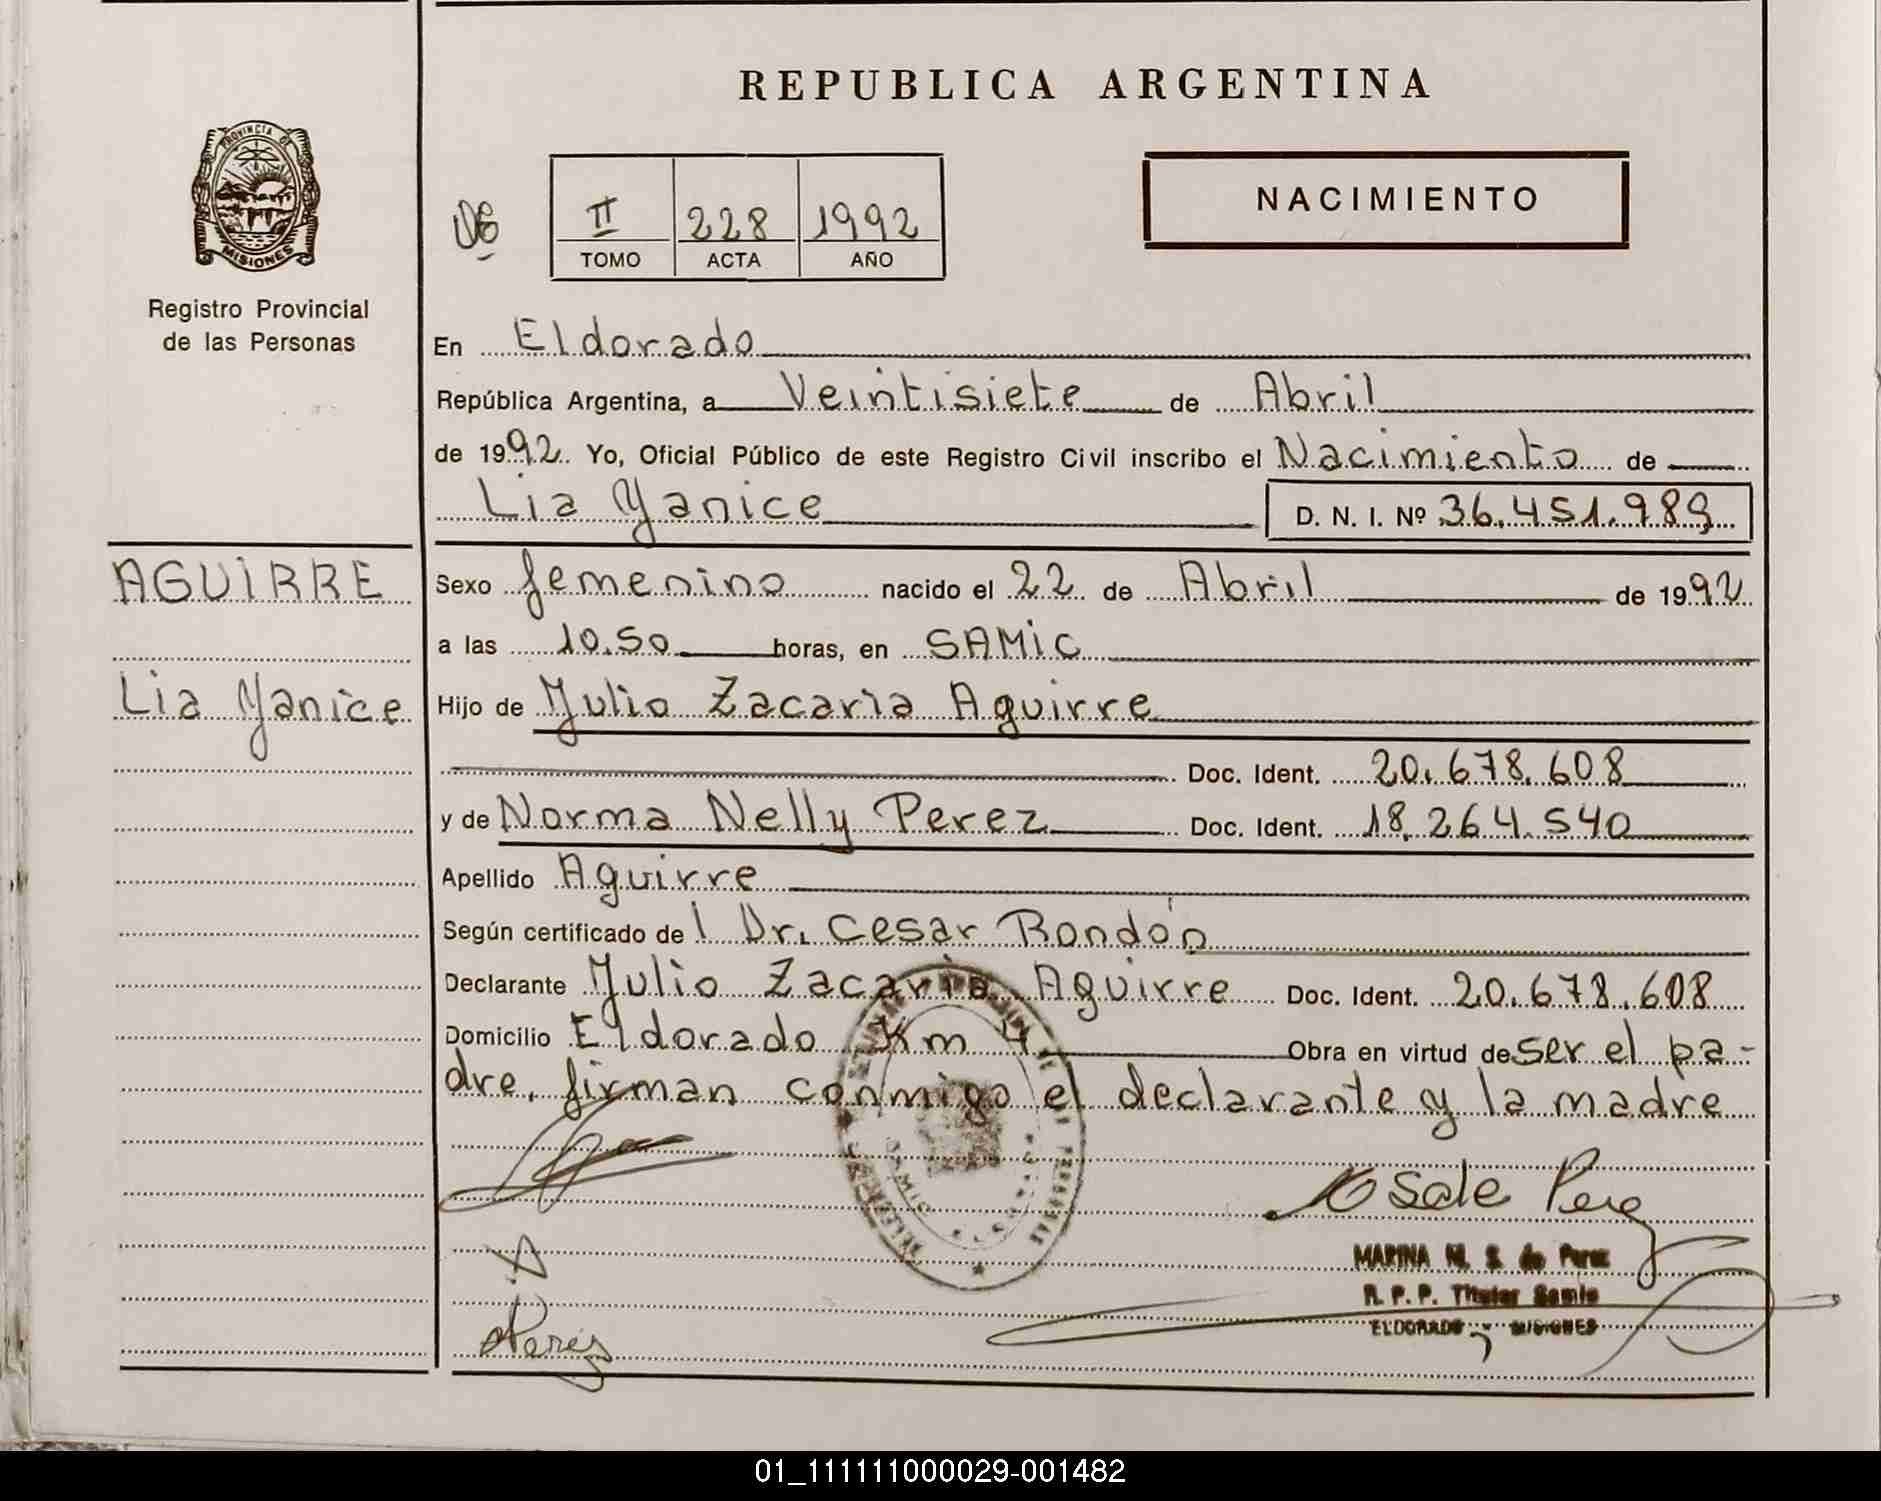 REPUBLICA ARGENTINA
PROVINCIA DE
MISIONES
Registro Provincial
de las Personas
II 228 1992
TOMO ACTA AÑO
NACIMIENTO
En Eldorado
República Argentina, a Veintisiete de Abril
de 1992. Yo, Oficial Público de este Registro Civil inscribo el Nacimiento de
Lia Yanice D. N. I. Nº 36.451.989
AGUIRRE
Lia Yanice
Sexo femenino nacido el 22 de Abril de 1992
a las 10.50 horas, en SAMIC
Hijo de Julio Zacaria Aguirre
Doc. Ident. 20.678.608
y de Norma Nelly Perez Doc. Ident. 18.264.540
Apellido Aguirre
Según certificado del Dr. Cesar Rondón
Declarante Julio Zacaria Aguirre Doc. Ident. 20.678.608
Domicilio Eldorado Km 4 Obra en virtud de ser el pa-
dre, firman conmigo el declarante y la madre
MARINA M. S. de Perez
R. P. P. Titular Samic
ELDORADO - MISIONES
Perez
01_111111000029-001482